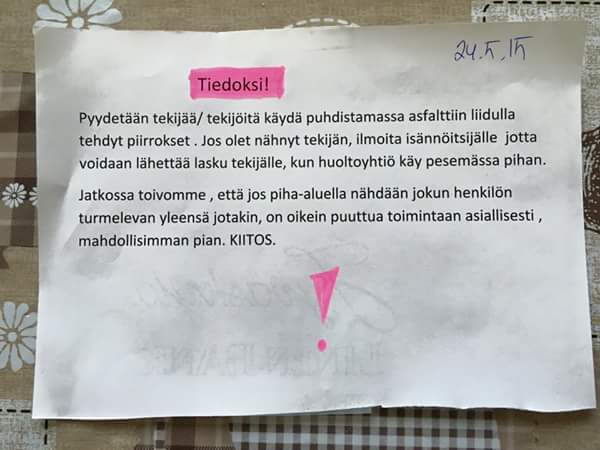 24.5.15
Tiedoksi!
Pyydetään tekijää/ tekijöitä käydä puhdistamassa asfalttiin liidulla
tehdyt piirrokset . Jos olet nähnyt tekijän, ilmoita isännöitsijälle jotta
voidaan lähettää lasku tekijälle, kun huoltoyhtiö käy pesemässä pihan.
Jatkossa toivomme , että jos piha-aluella nähdään jokun henkilön
turmelevan yleensä jotakin, on oikein puuttua toimintaan asiallisesti ,
mahdollisimman pian. KIITOS.
!